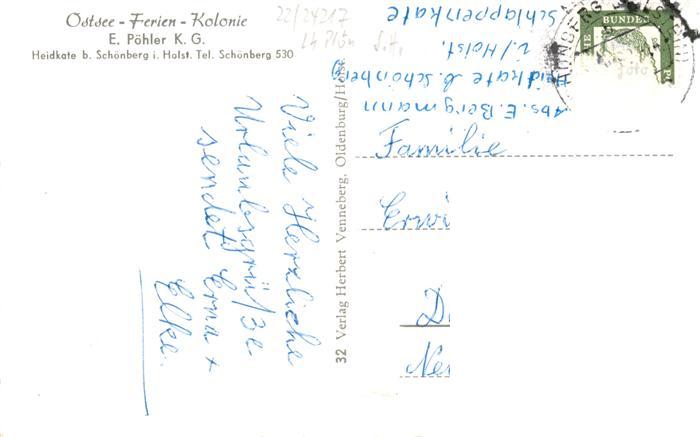 Ostsee - Ferien - Kolonie
E. Pöhler K. G.
Heidkate b. Schönberg i. Holst. Tel. Schönberg 530
22/24217
Lk Plön S.H.
Viele Herzliche
Urlaubsgrüße
sendet Erna +
Elke.
32 Verlag Herbert Venneberg, Oldenburg/Holst.
Abs. E. Bergmann
Heidkate b. Schönberg
i./Holst.
Schlappenkate
Familie
Erwi
D
Neu
BUNDES